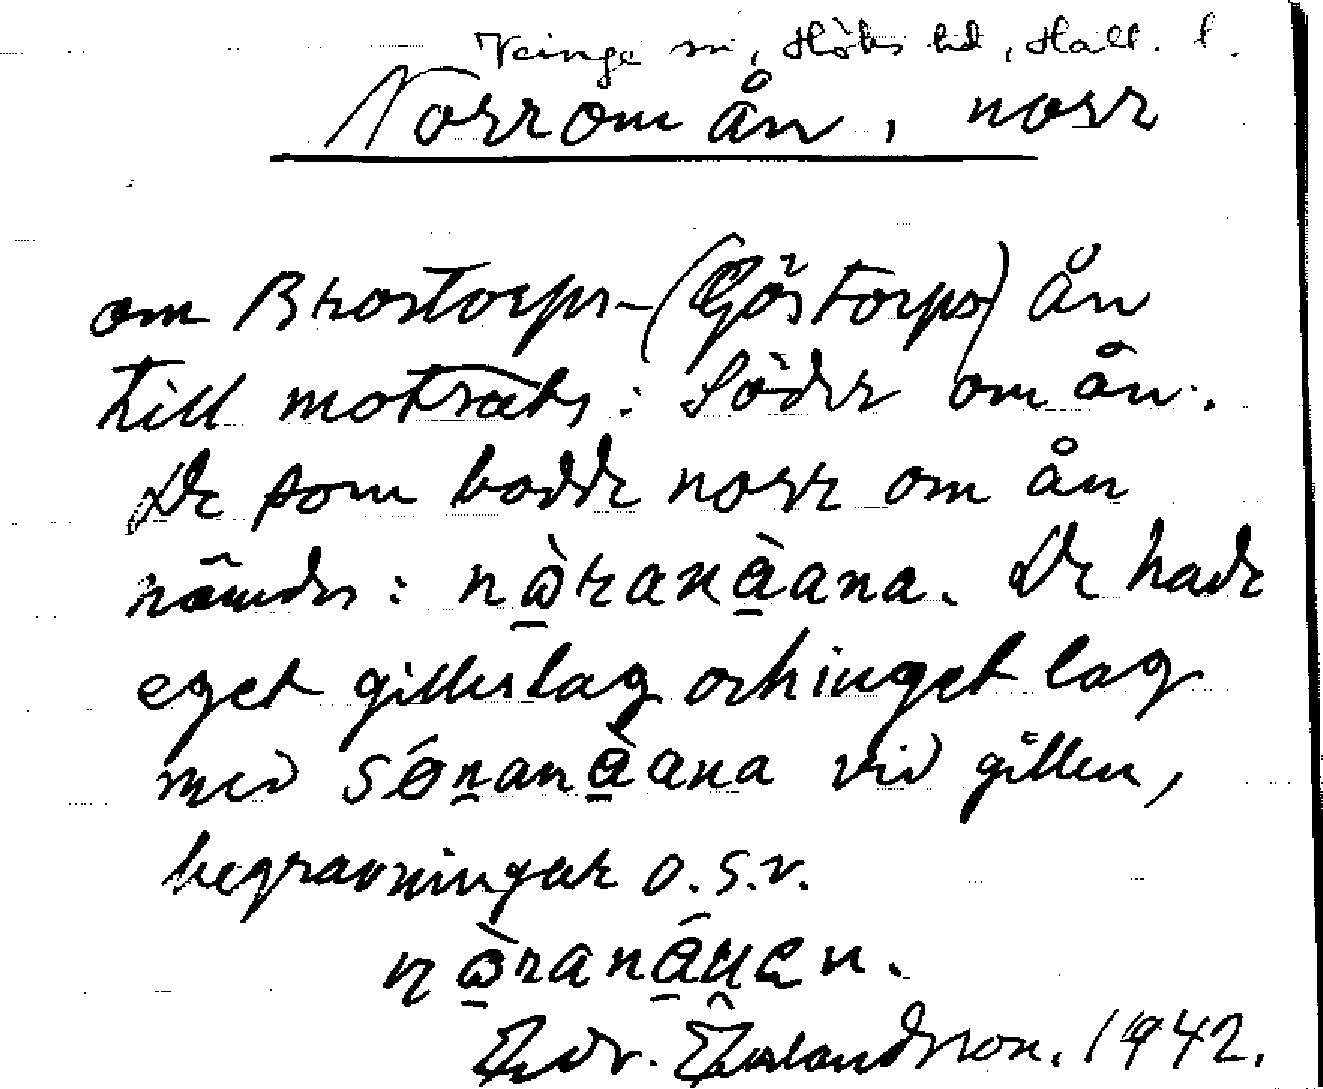 Veinge sn, Höks hd, Hall. l.
Norr om ån, norr
om Brostorps-(Göstorps) ån
till motsats: Söder om ån.
De som bodde norr om ån
nämdes: nòranàana. De hade
eget gilleslag och inget lag
med sónanàana vid gillen,
begravningar o.s.v.
Edv. Erlandsson. 1942.